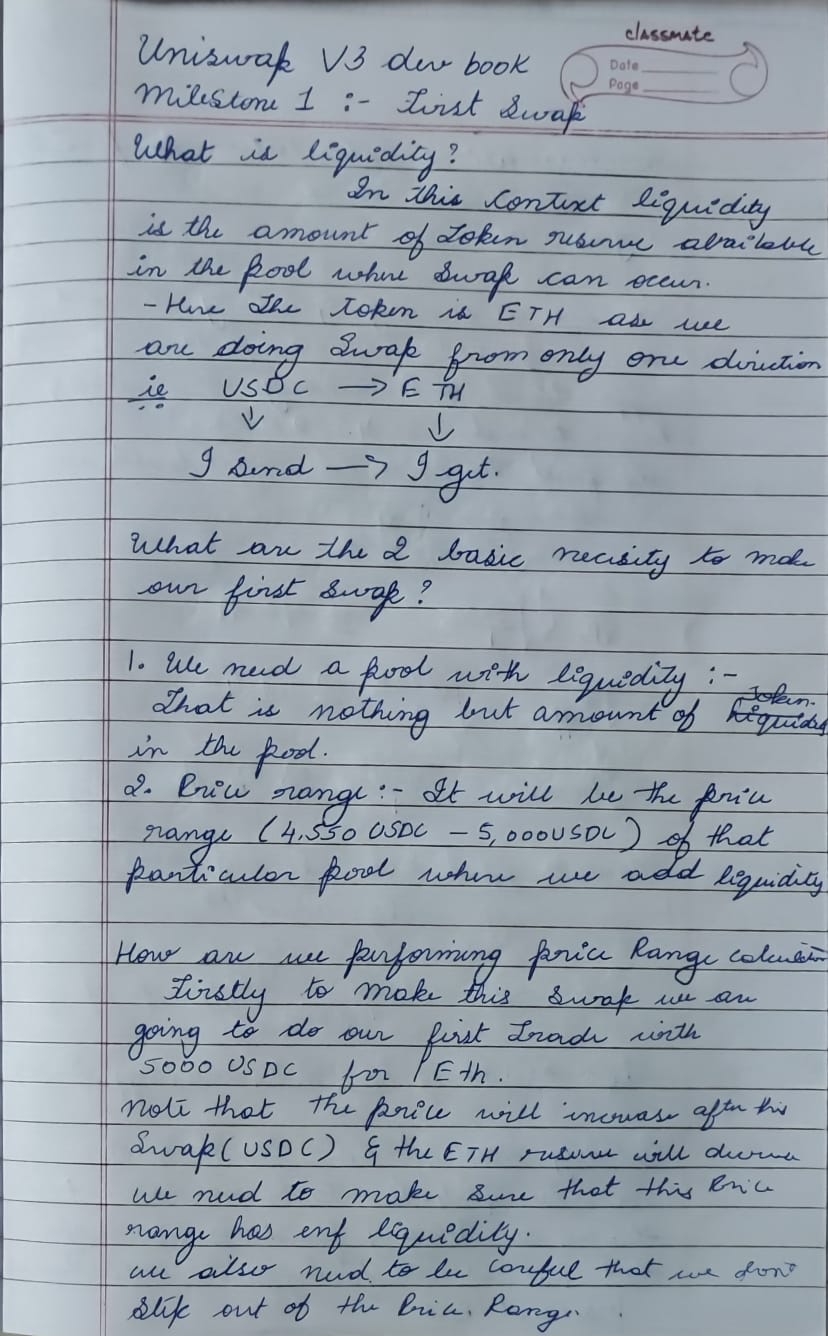 classmate
Date
Page
Uniswap V3 dev book
Milestone 1 :- First Swap
What is liquidity?
In this context liquidity
is the amount of Token reserve available
in the pool where Swap can occur.
- Here the token is ETH as we
are doing Swap from only one direction
ie USDC → ETH
↓ ↓
I send → I get.
What are the 2 basic necisity to make
our first swap?
1. We need a pool with liquidity :-
That is nothing but amount of token
in the pool.
2. Price range :- It will be the price
range (4,550 USDC - 5,000 USDC) of that
particular pool where we add liquidity
How are we performing price Range calculation
Firstly to make this swap we are
going to do our first Trade worth
5000 USDC for 1 Eth.
Note that the price will increase after this
Swap (USDC) & the ETH reserve will decrease
we need to make sure that this Price
range has enf liquidity.
we also need to be careful that we don't
slip out of the Price Range.